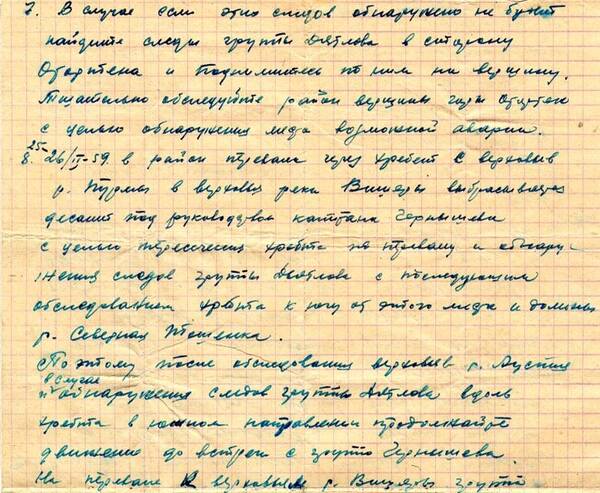 7. В случае если этих следов обнаружено не будет
найдите следы группы Дятлова в сторону
Отортена и поднимитесь по ним на вершину.
Тщательно обследуйте район вершины горы Отортен
с целью обнаружения места возможной аварии.
25-
8. 26/II-59. в район перевала через хребет с верховьев
р. Пурмы в верховья реки Вишеры выбрасывается
десант под руководством капитана Чернышева
с целью пересечения хребта по перевалу и обнару-
жения следов группы Дятлова с последующим
обследованием хребта к югу от этого места и долины
р. Северная Тошемка.
Поэтому после обследования верховьев р. Ауспия
в случае
и обнаружения следов группы Дятлова вдоль
хребта в южном направлении продолжайте
движение до встречи с группой Чернышева.
На перевале к верховьям р. Вишеры группа